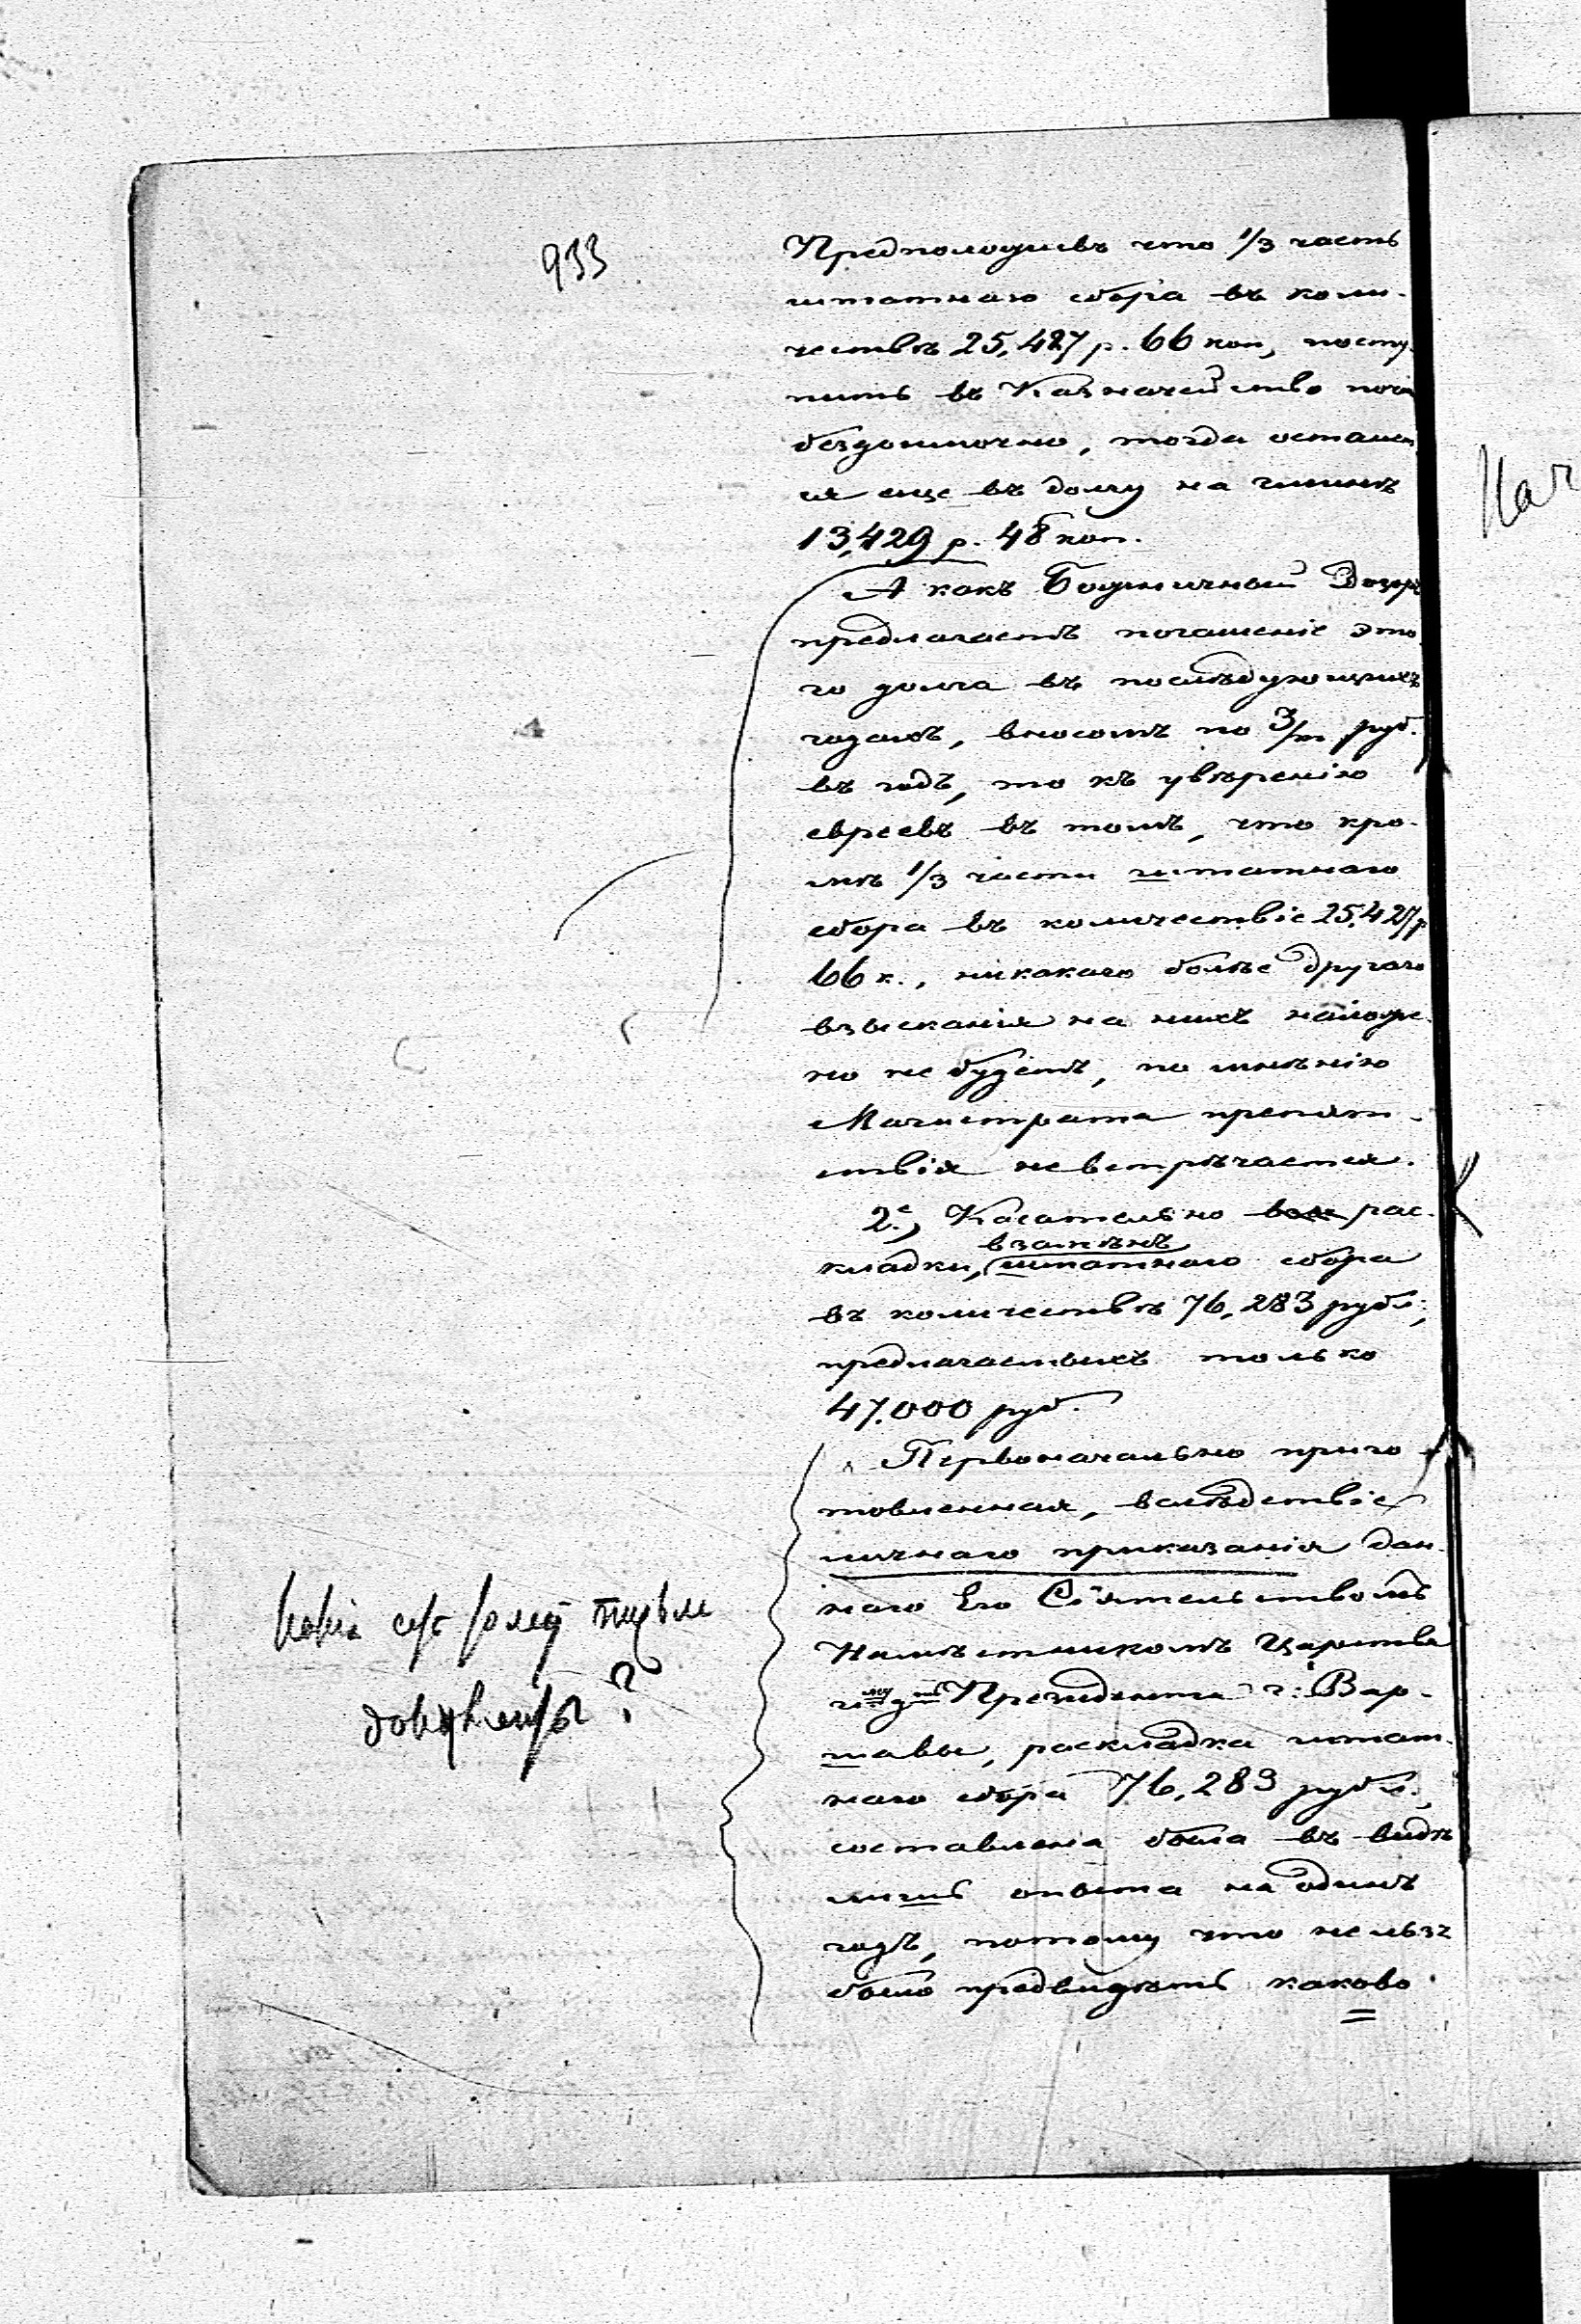 933
Предположивъ что 1/3 часть
штатнаго сбора въ коли-
чествѣ 25,427 р. 66 коп, посту-
питъ въ Казначейство
бездоимочно, тогда останет
ся еще въ долгу на гминѣ
13,429 р. 48 коп.
А какъ Божничный Дозоръ
предлагаетъ погашеніе это-
го долга въ послѣдующихъ
годахъ, вносомъ по 3/m руб.
въ годъ, то къ увѣренію
евреевъ въ томъ, что кро-
мѣ 1/3 части штатнаго
сбора въ количествіе 25,427 р
66 к., никакаго болѣе другаго
взысканія на нихъ наложе-
но не будетъ, по мнѣнію
Магистрата препят-
ствія не встрѣчается.
2.е, Касательно рас-
взамѣнъ
кладки, штатнаго сбора
въ количествѣ 76,283 рубл.,
предлагаемыхъ только
47.000 руб.
Первоначально приго-
товленная, вслѣдствіе
личнаго приказанія дан-
наго Его Сіятельствомъ
Намѣстникомъ Царства
Президента г. Вар-
шавы, раскладка штат-
наго сбора 76,283 рубл.,
составлена была въ видѣ
лишь опыта на одинъ
годъ, потому что нельзя
было предвидѣть каково
документы?
Нач